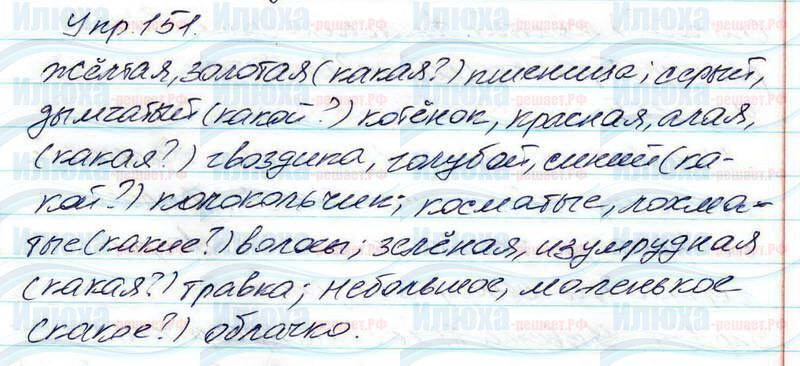 Упр. 151.
жёлтая, золотая (какая?) пшеница; серый,
дымчатый (какой?) котёнок, красная, алая,
(какая?) гвоздика, голубой, синий (ка-
кой?) колокольчик; косматые, лохма-
тые (какие?) волосы; зелёная, изумрудная
(какая?) травка; небольшое, маленькое
(какое?) облачко.